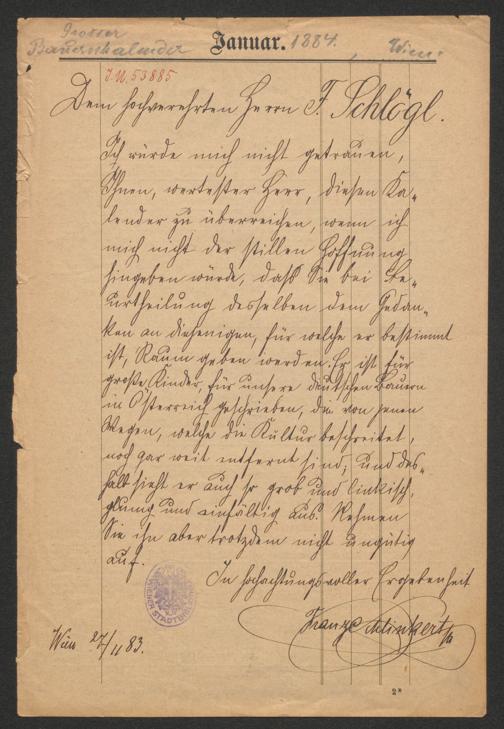 Grosser
Bauernkalender
Januar. 1884. Wien
I.N. 53885
Dem hochverehrten Herrn F. Schlögl.
Ich würde mich nicht getrauen,
Ihnen, wertester Herr, diesen Ka-
lender zu überreichen, wenn ich
mich nicht der stillen Hoffnung
hingeben würde, daß Sie bei Be-
urtheilung desselben dem Gedan-
ken an diejenigen, für welche er bestimmt
ist, Raum geben werden. Er ist für
große Kinder, für unsere deutschen Bauern
in Österreich geschrieben, die von jenen
Wegen, welche die Kultur beschreitet,
noch gar weit entfernt sind; und des-
halb sieht er auch so grob und linkisch,
und einfältig aus. Nehmen
Sie ihn aber trotzdem nicht ungütig
auf.
In hochachtungsvoller Ergebenheit
WIENER STADTBIBL
Wien 27/11 83.
2*